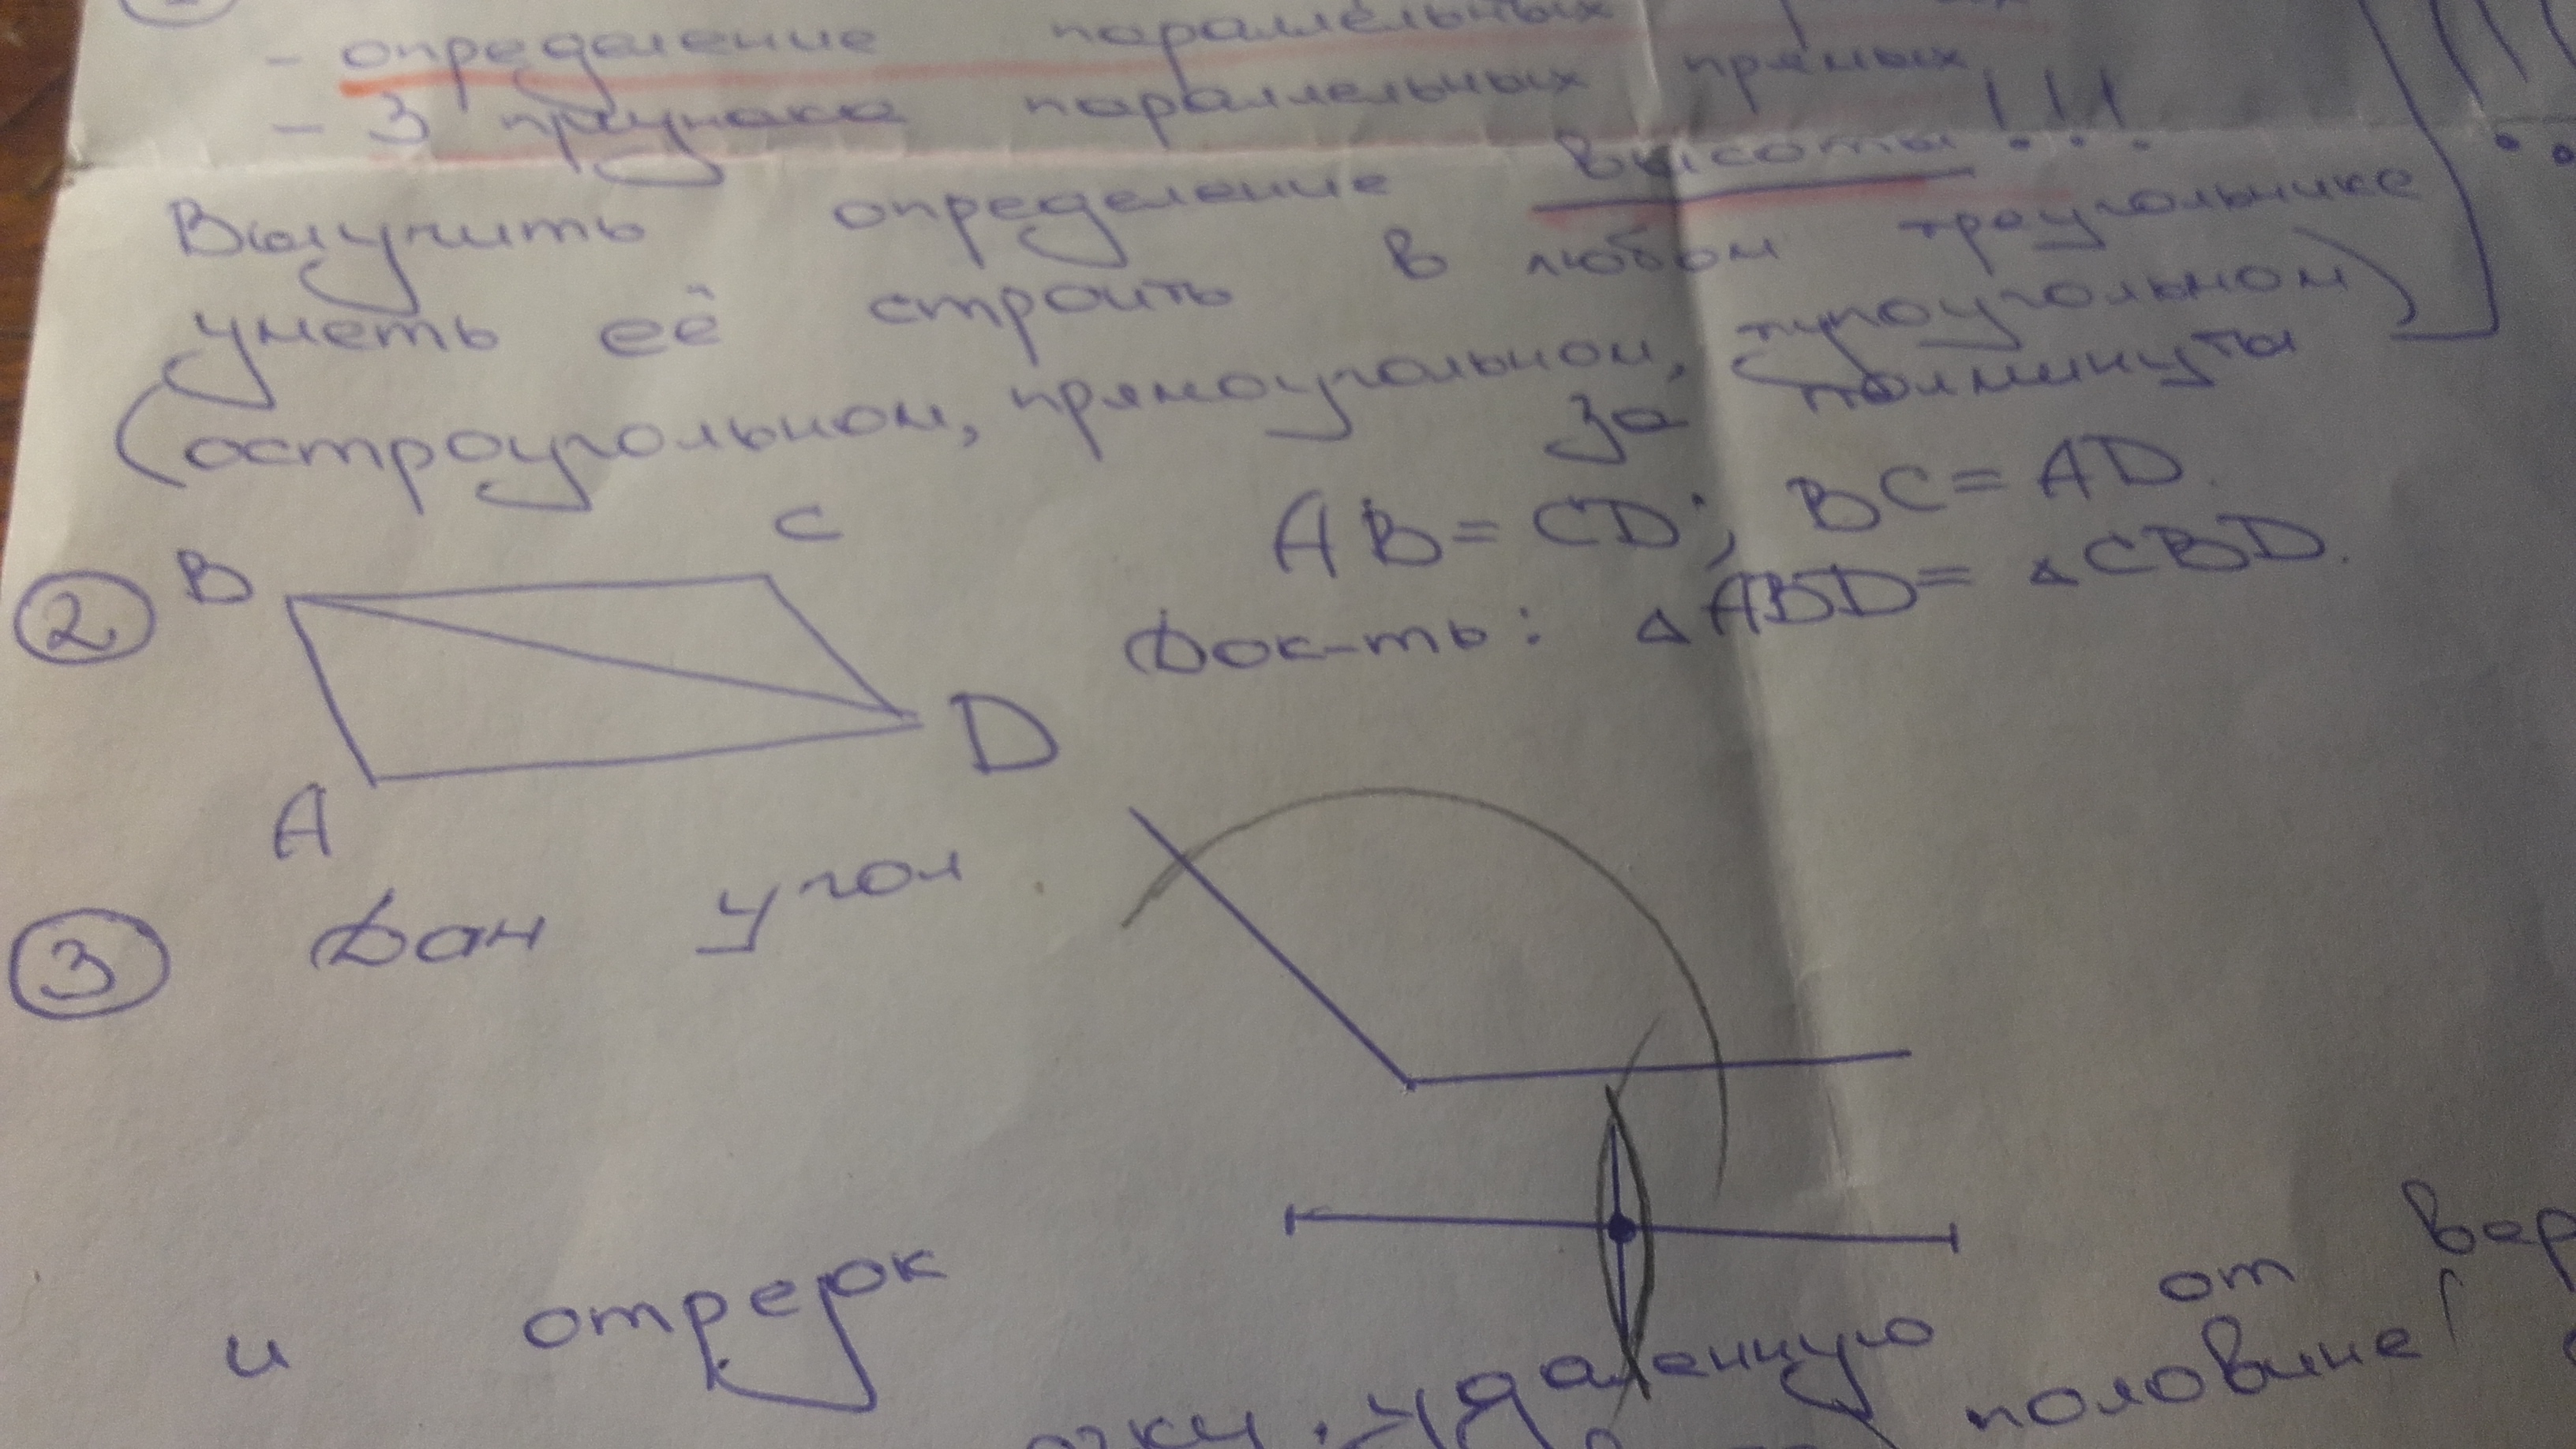 - определение параллельных
- 3 признака параллельных прямых
Выучить определение высоты!!!
уметь её строить в любом треугольнике
(остроугольном, прямоугольном, тупоугольном)
за полминуты
② B C AB = CD; BC = AD.
Док-ть: △ABD = △CBD.
A D
③ Дан угол
и отрезок
удаленную от
половине